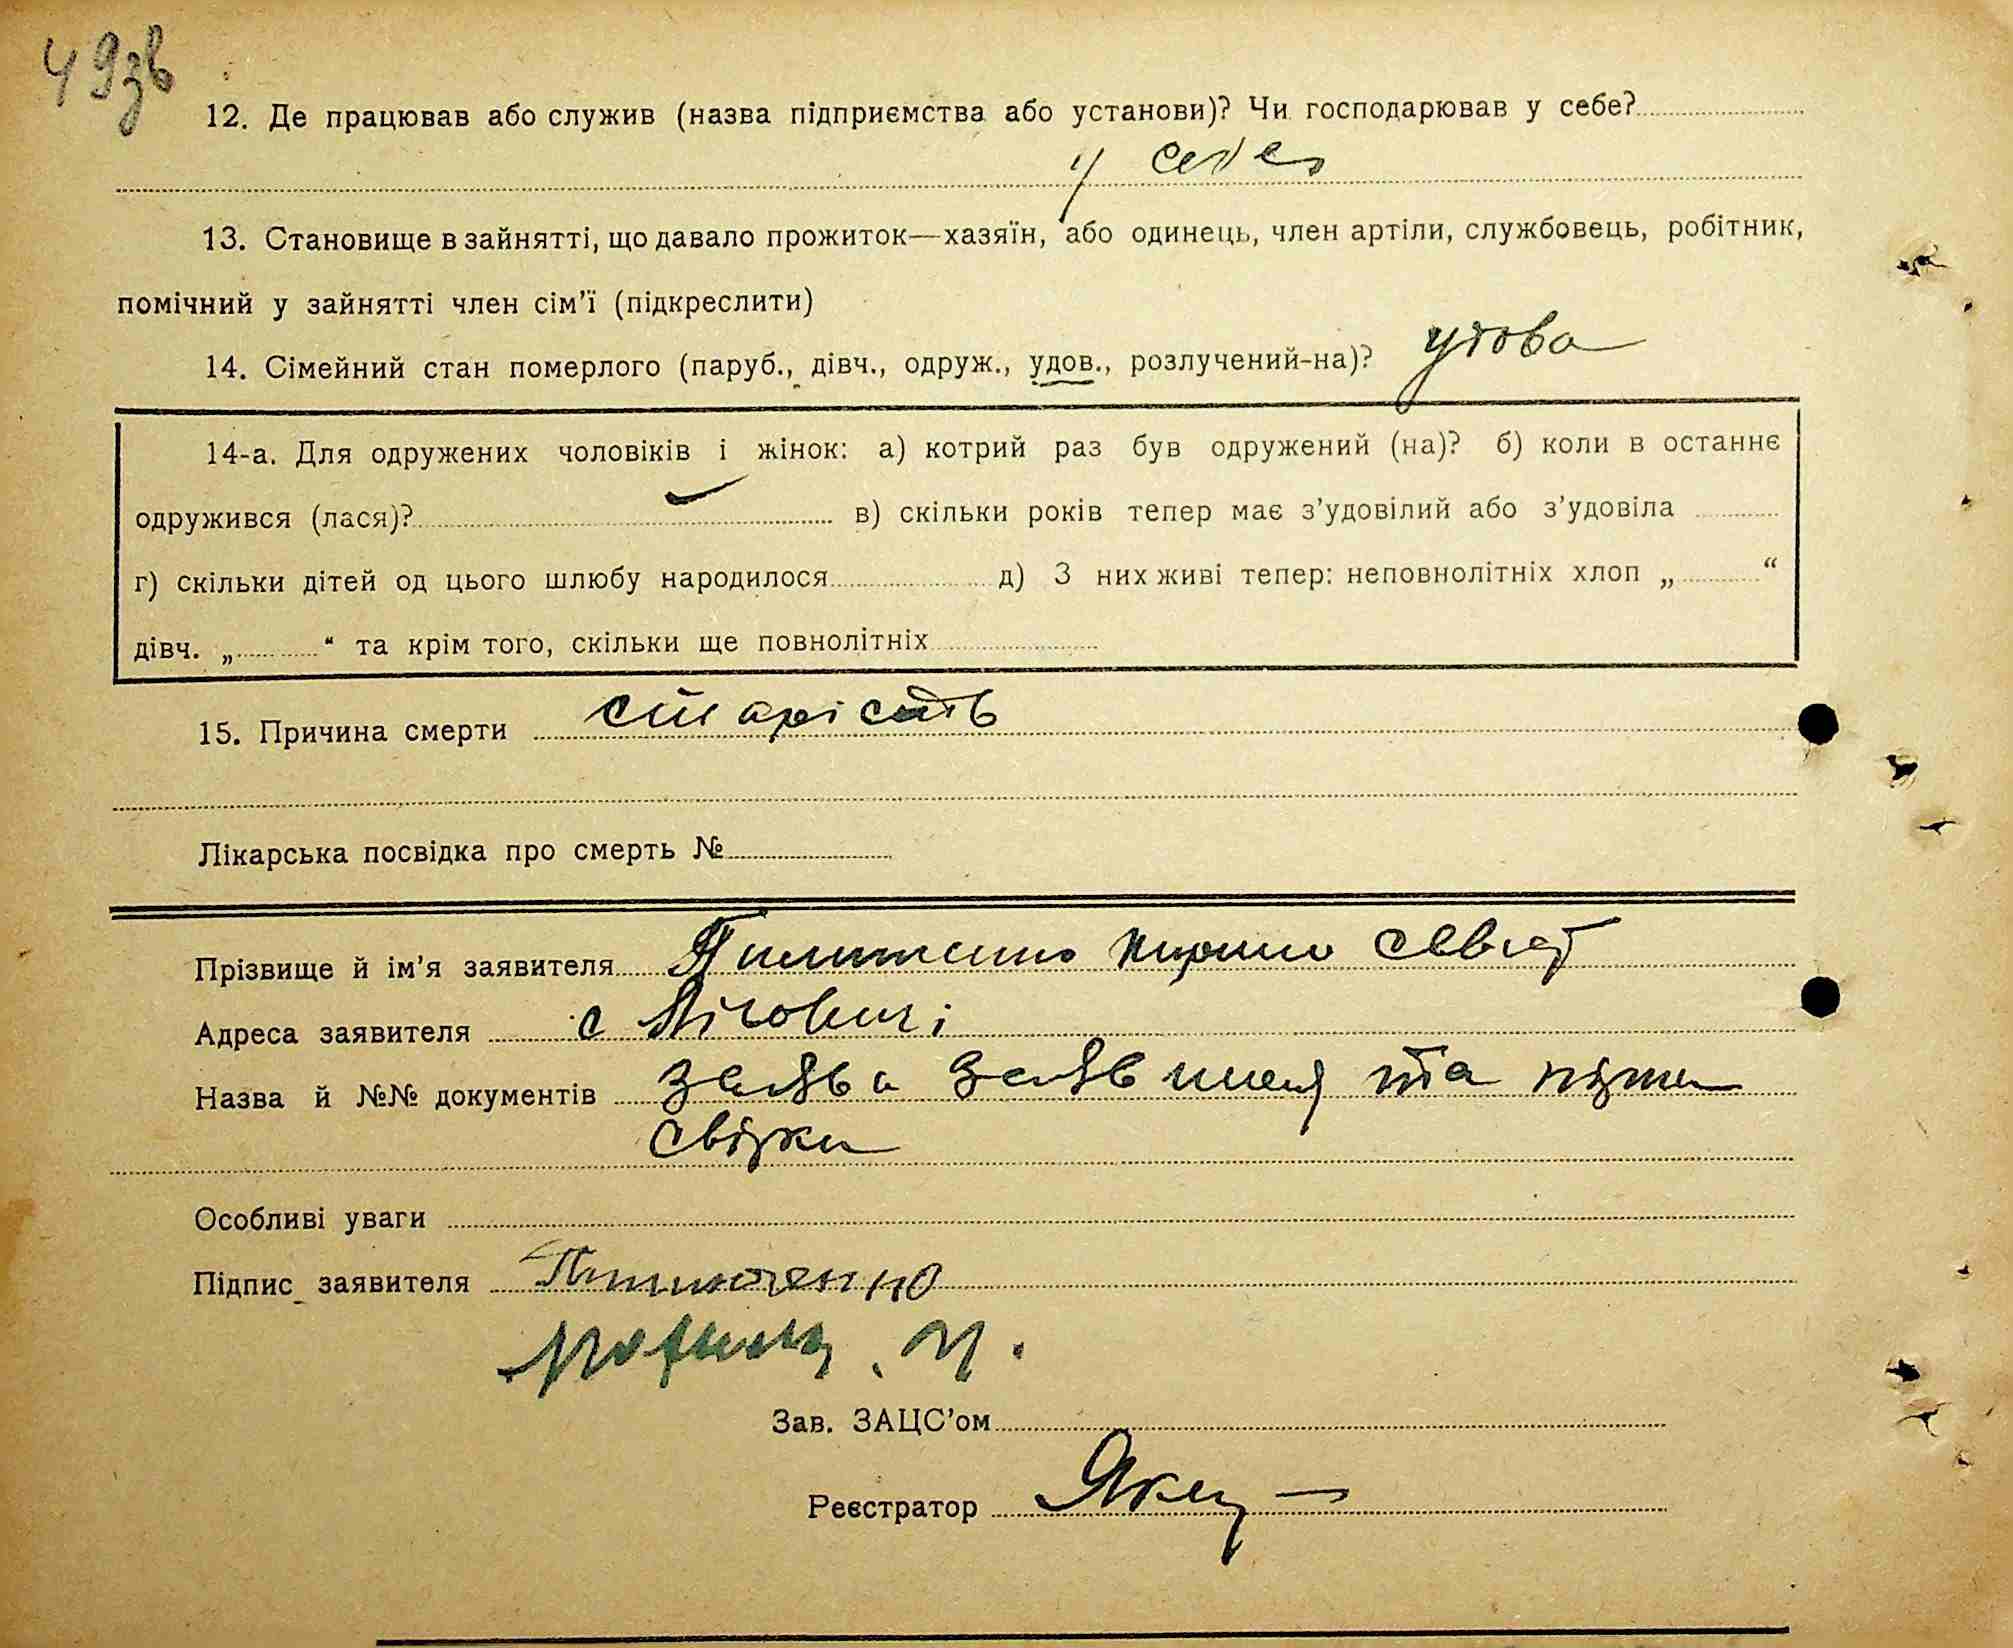 49зв
12. Де працював або служив (назва підприємства або установи)? Чи господарював у себе?
у себе
13. Становище в зайнятті, що давало прожиток—хазяїн, або одинець, член артіли, службовець, робітник,
помічний у зайнятті член сім’ї (підкреслити)
14. Сімейний стан померлого (паруб., дівч., одруж., удов., розлучений-на)? удова
14-а. Для одружених чоловіків і жінок: а) котрий раз був одружений (на)? б) коли в останнє
одружився (лася)? в) скільки років тепер має з’удовілий або з’удовіла
г) скільки дітей од цього шлюбу народилося д) З них живі тепер: неповнолітніх хлоп „ “
дівч. „ “ та крім того, скільки ще повнолітніх
15. Причина смерти старість
Лікарська посвідка про смерть №
Прізвище й ім’я заявителя
Адреса заявителя с
Назва й №№ документів заява заявителя та
свідки
Особливі уваги
Підпис заявителя
Зав. ЗАЦС’ом
Реєстратор